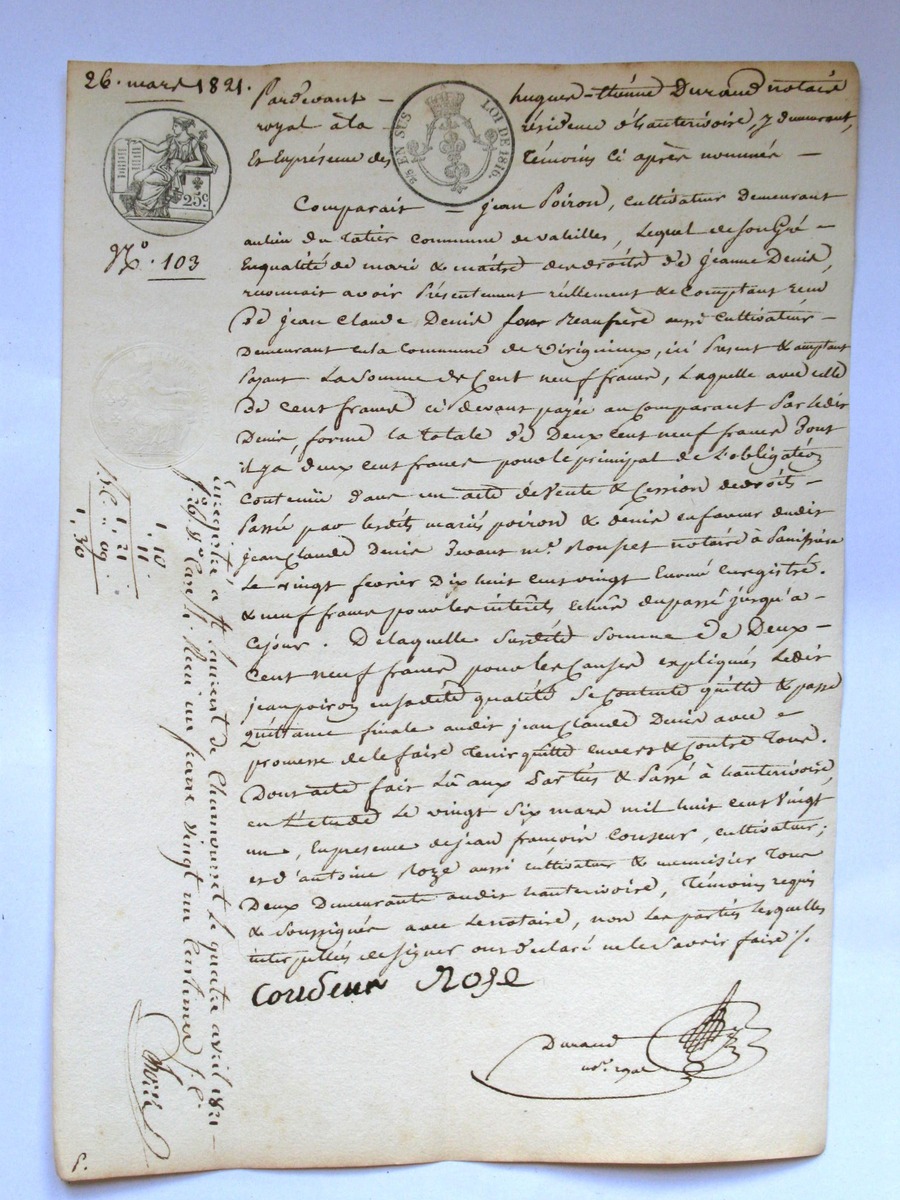 26. mars 1821.
Pardevant — hugues-étienne Durand notaire
royal à la résidence d'hauterivoire, y demeurant,
Et En présence des témoins ci après nommés —
9/8 EN SUS LOI DE 1816.
25c
No. 103
Comparait — jean Poiron, cultivateur demeurant
au lieu du commune de valeilles, Lequel de son Gré —
En qualité de mari & maître des droits de jeanne Denis,
reconnait avoir Présentement réellement & comptant reçu
De jean Claude Denis son Beaufrère aussi cultivateur —
Demeurant en la commune de Virigneux, ici Présent & acceptant
Payant La Somme de Cent neuf francs, Laquelle avec celle
De cent francs ci devant payée au comparant Par ledit
Denis, forme la totale de Deux Cent neuf francs Dont
il y a deux cent francs pour le principal de L'obligation
contenue dans un acte de Vente & Cession de droits —
Passé par lesdits mariés poiron & denis en faveur dudit
jean Claude Denis Devant me. Rouset notaire à
Le vingt fevrier Dix huit cent vingt enregistré.
& neuf francs pour les intérêts échus du passé jusqu'à —
Ce jour. De laquelle Susdite Somme de Deux —
Cent neuf francs pour les causes expliqués Ledit
jean poiron en sadite qualité se contente quitte & passe
Quittance finale audit jean Claude Denis avec —
promesse de le faire tenir quitte envers & Contre Tous.
Dont acte fait Lû aux Parties & Passé à hauterivoire
en L'étude Le vingt Six mars mil huit cent Vingt
un, En présence de jean françois Couseur, cultivateur,
et d'antoine Roze aussi cultivateur & menuisier Tous
Deux Demeurants audit hauterivoire, Témoins requis
& Soussignés avec Le notaire, non les parties lesquelles
interpellées de signer ont déclaré ne le Savoir faire /.
Coudeur Rose
Durand
nore. royal
Enregistré à St. Laurent de Chamousset Le quatre avril 1821 —
fo. 36 Vo. Case 1. Reçu un franc vingt un centimes
1, 10
11
1, 21
" 09
1, 30